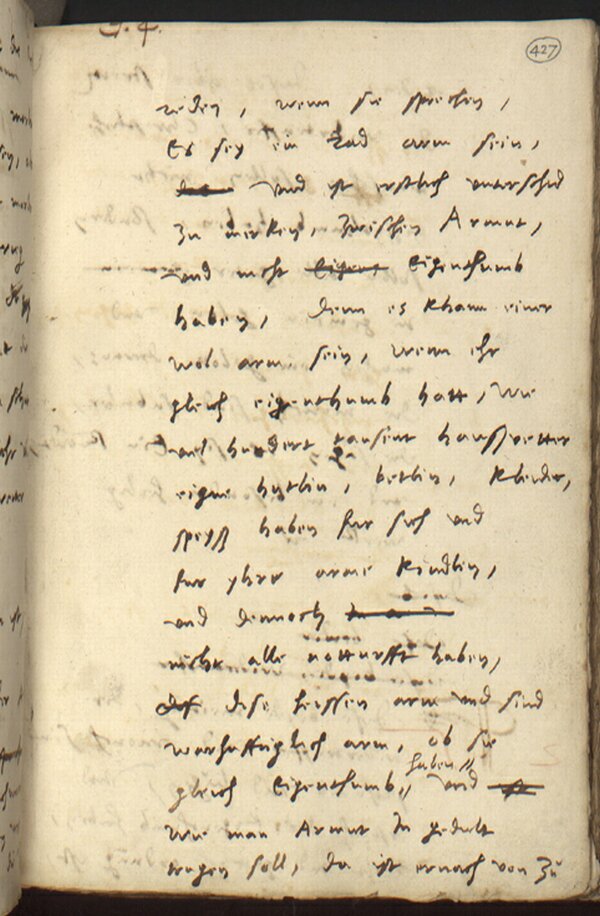 427
reden, wenn sie sprechen,
Es sey ein Bad arm sein,
und ist erstlich unterschid
zu merken, zwischen Armut,
und nicht Eigenthumb
haben, denn es khann einer
wol arm sein, wenn ehr
gleich eigenthumb hatt, wie
viel hundert tausent haußvetter
eigne hutlin, betlin, kleider,
speyß haben fur sich und
fur yhre arme kindlin,
und dennoch
nicht alle notturfft haben,
dise heissen arm und sind
warhafftiglich arm, ob sie
gleich Eigenthumb haben, und
wie man Armut In gedult
tragen soll, da ist ernach von zu